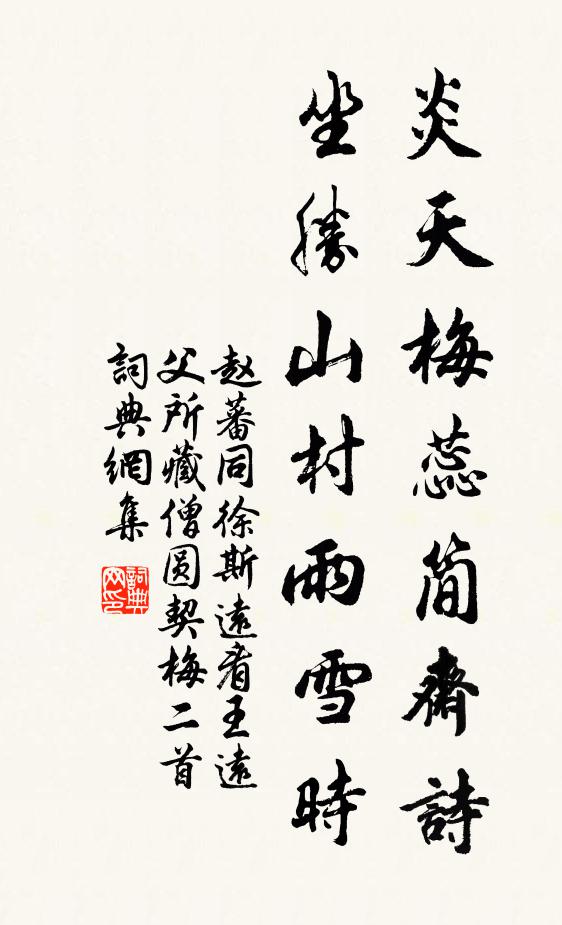 炎天梅蕊简齋詩
坐勝山村雨雪時
赵蕃同徐斯遠看王遠
父所藏僧圆契梅二首
詞典網集
詞典
网印